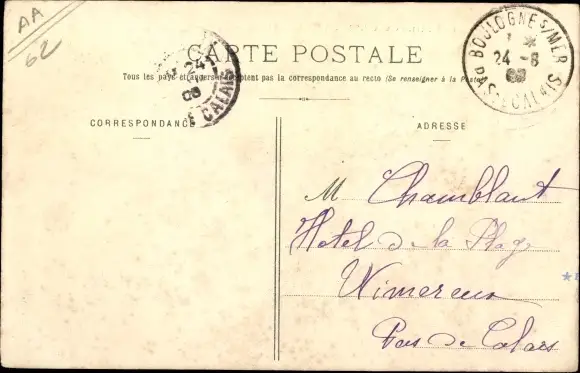 AA
62
CARTE POSTALE
Tous les pays étrangers n'acceptent pas la correspondance au recto (Se renseigner à la Poste)
BOULOGNE S/MER
24 -8
08
PAS-DE-CALAIS
24
08
CALAIS
CORRESPONDANCE
ADRESSE
M Chamblant
Hotel de la Plage
Wimereux
Pas de Calais